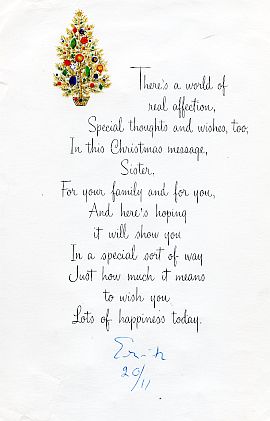 There's a world of
real affection,
Special thoughts and wishes, too,
In this Christmas message,
Sister,
For your family and for you,
And here's hoping
it will show you
In a special sort of way
Just how much it means
to wish you
Lots of happiness today.
20/11